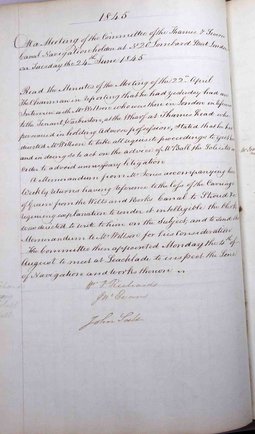 1845
At a Meeting of the Committee of the Thames & Severn
Canal Navigation holden at No 20 Lombard Street London
on Tuesday the 24th June 1845
Read the Minutes of the Meeting of the 22nd April
The Chairman in reporting that he had yesterday had an
Interview with Mr Wilson who was then in London informed
the Tenant at the Wharf at Thames head who
persevered in holding adverse possession, stated that he had
directed Mr Wilson to take all requisite proceedings to
and in doing so to act on the advice of Mr Ball the Solicitor in
order to avoid unnecessary litigation
A Memorandum from Mr accompanying his
Weekly Returns having reference to the loss of the Carriage
of from the Wilts and Berks Canal to Stroud &
requiring explanation to render it intelligible the Clerk
was directed to write to him on the subject, and to send the
Memorandum to Mr Wilson for his Consideration
The Committee then appointed Monday the 4th of
August to meet at Leachlade to inspect the Line
of Navigation and works thereon
Richards
John